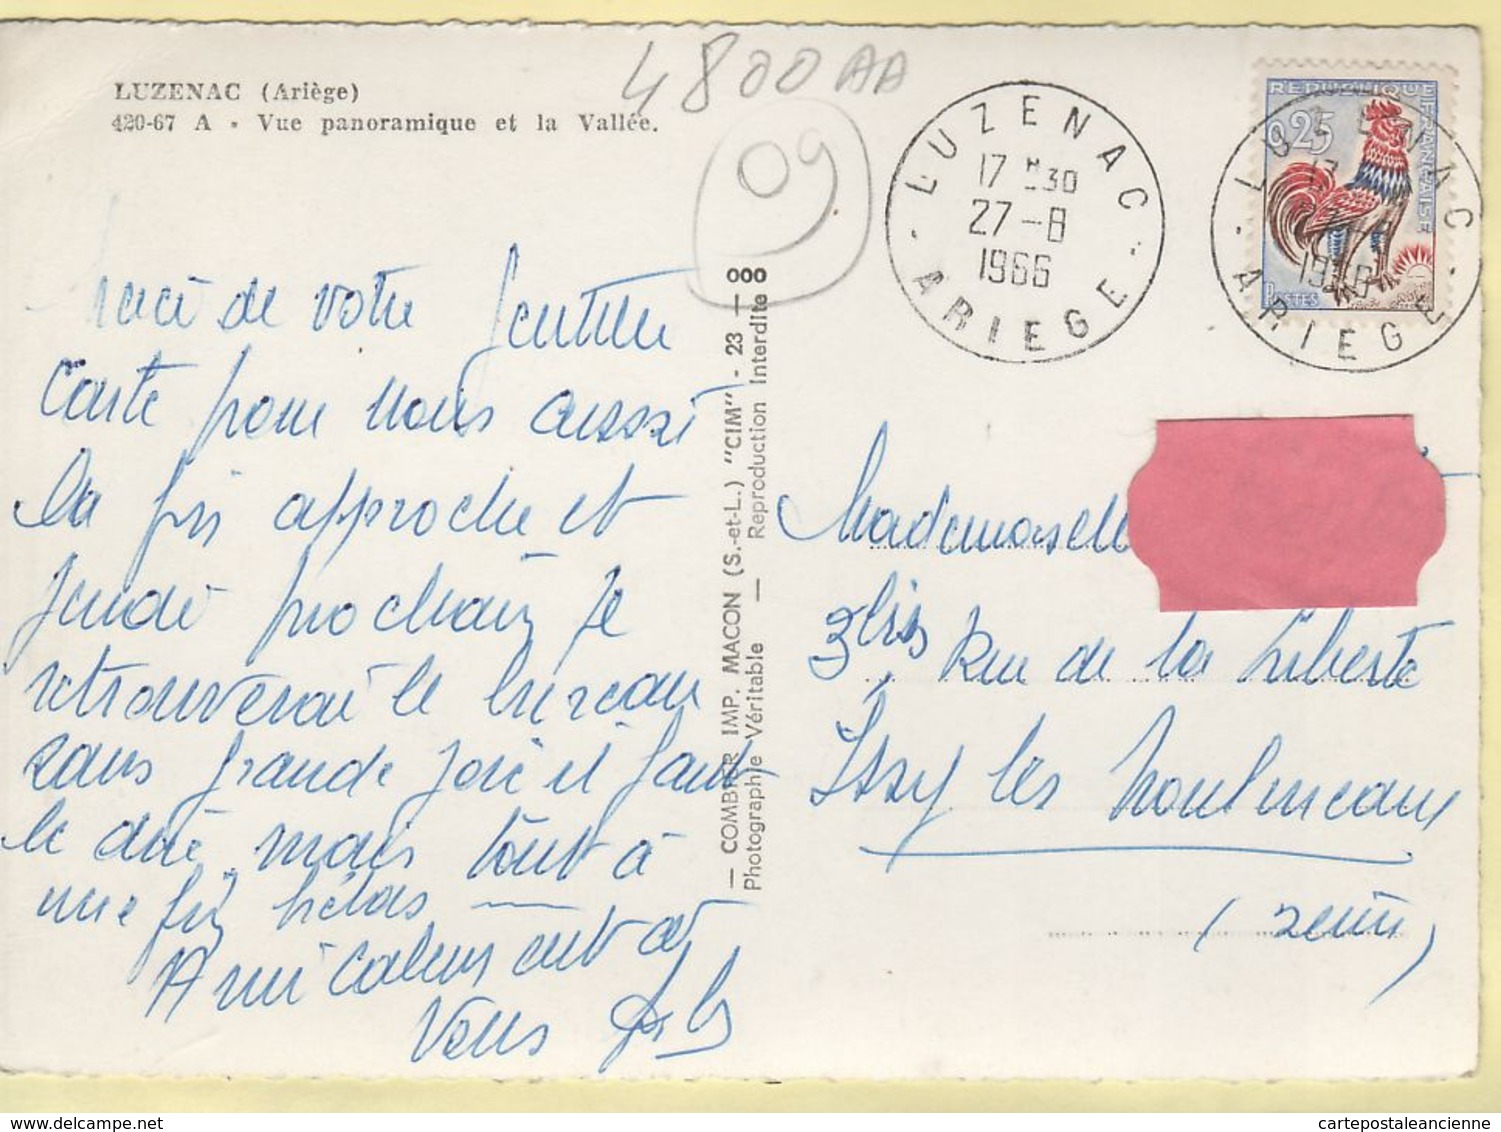 LUZENAC (Ariège)
420-67 A - Vue panoramique et la Vallée.
4800 AA
09
LUZENAC
17 H30
27-8
1966
ARIEGE
REPUBLIQUE FRANÇAISE
0,25
POSTES
LUZENAC
ARIEGE
merci de votre gentille
Carte pour nous aussi
la fin approche et
jeudi prochain je
retrouverai le bureau
sans grande joie il faut
le dire, mais tout à
une fin hélas
Amicalement à
Vous
— COMBIER IMP. MACON (S.-et-L.) "CIM" - 23 — 000
Photographie Véritable — Reproduction Interdite
Mademoiselle
3 bis Rue de la Liberté
Issy les Moulineaux
(Seine)
cartepostaleancienne